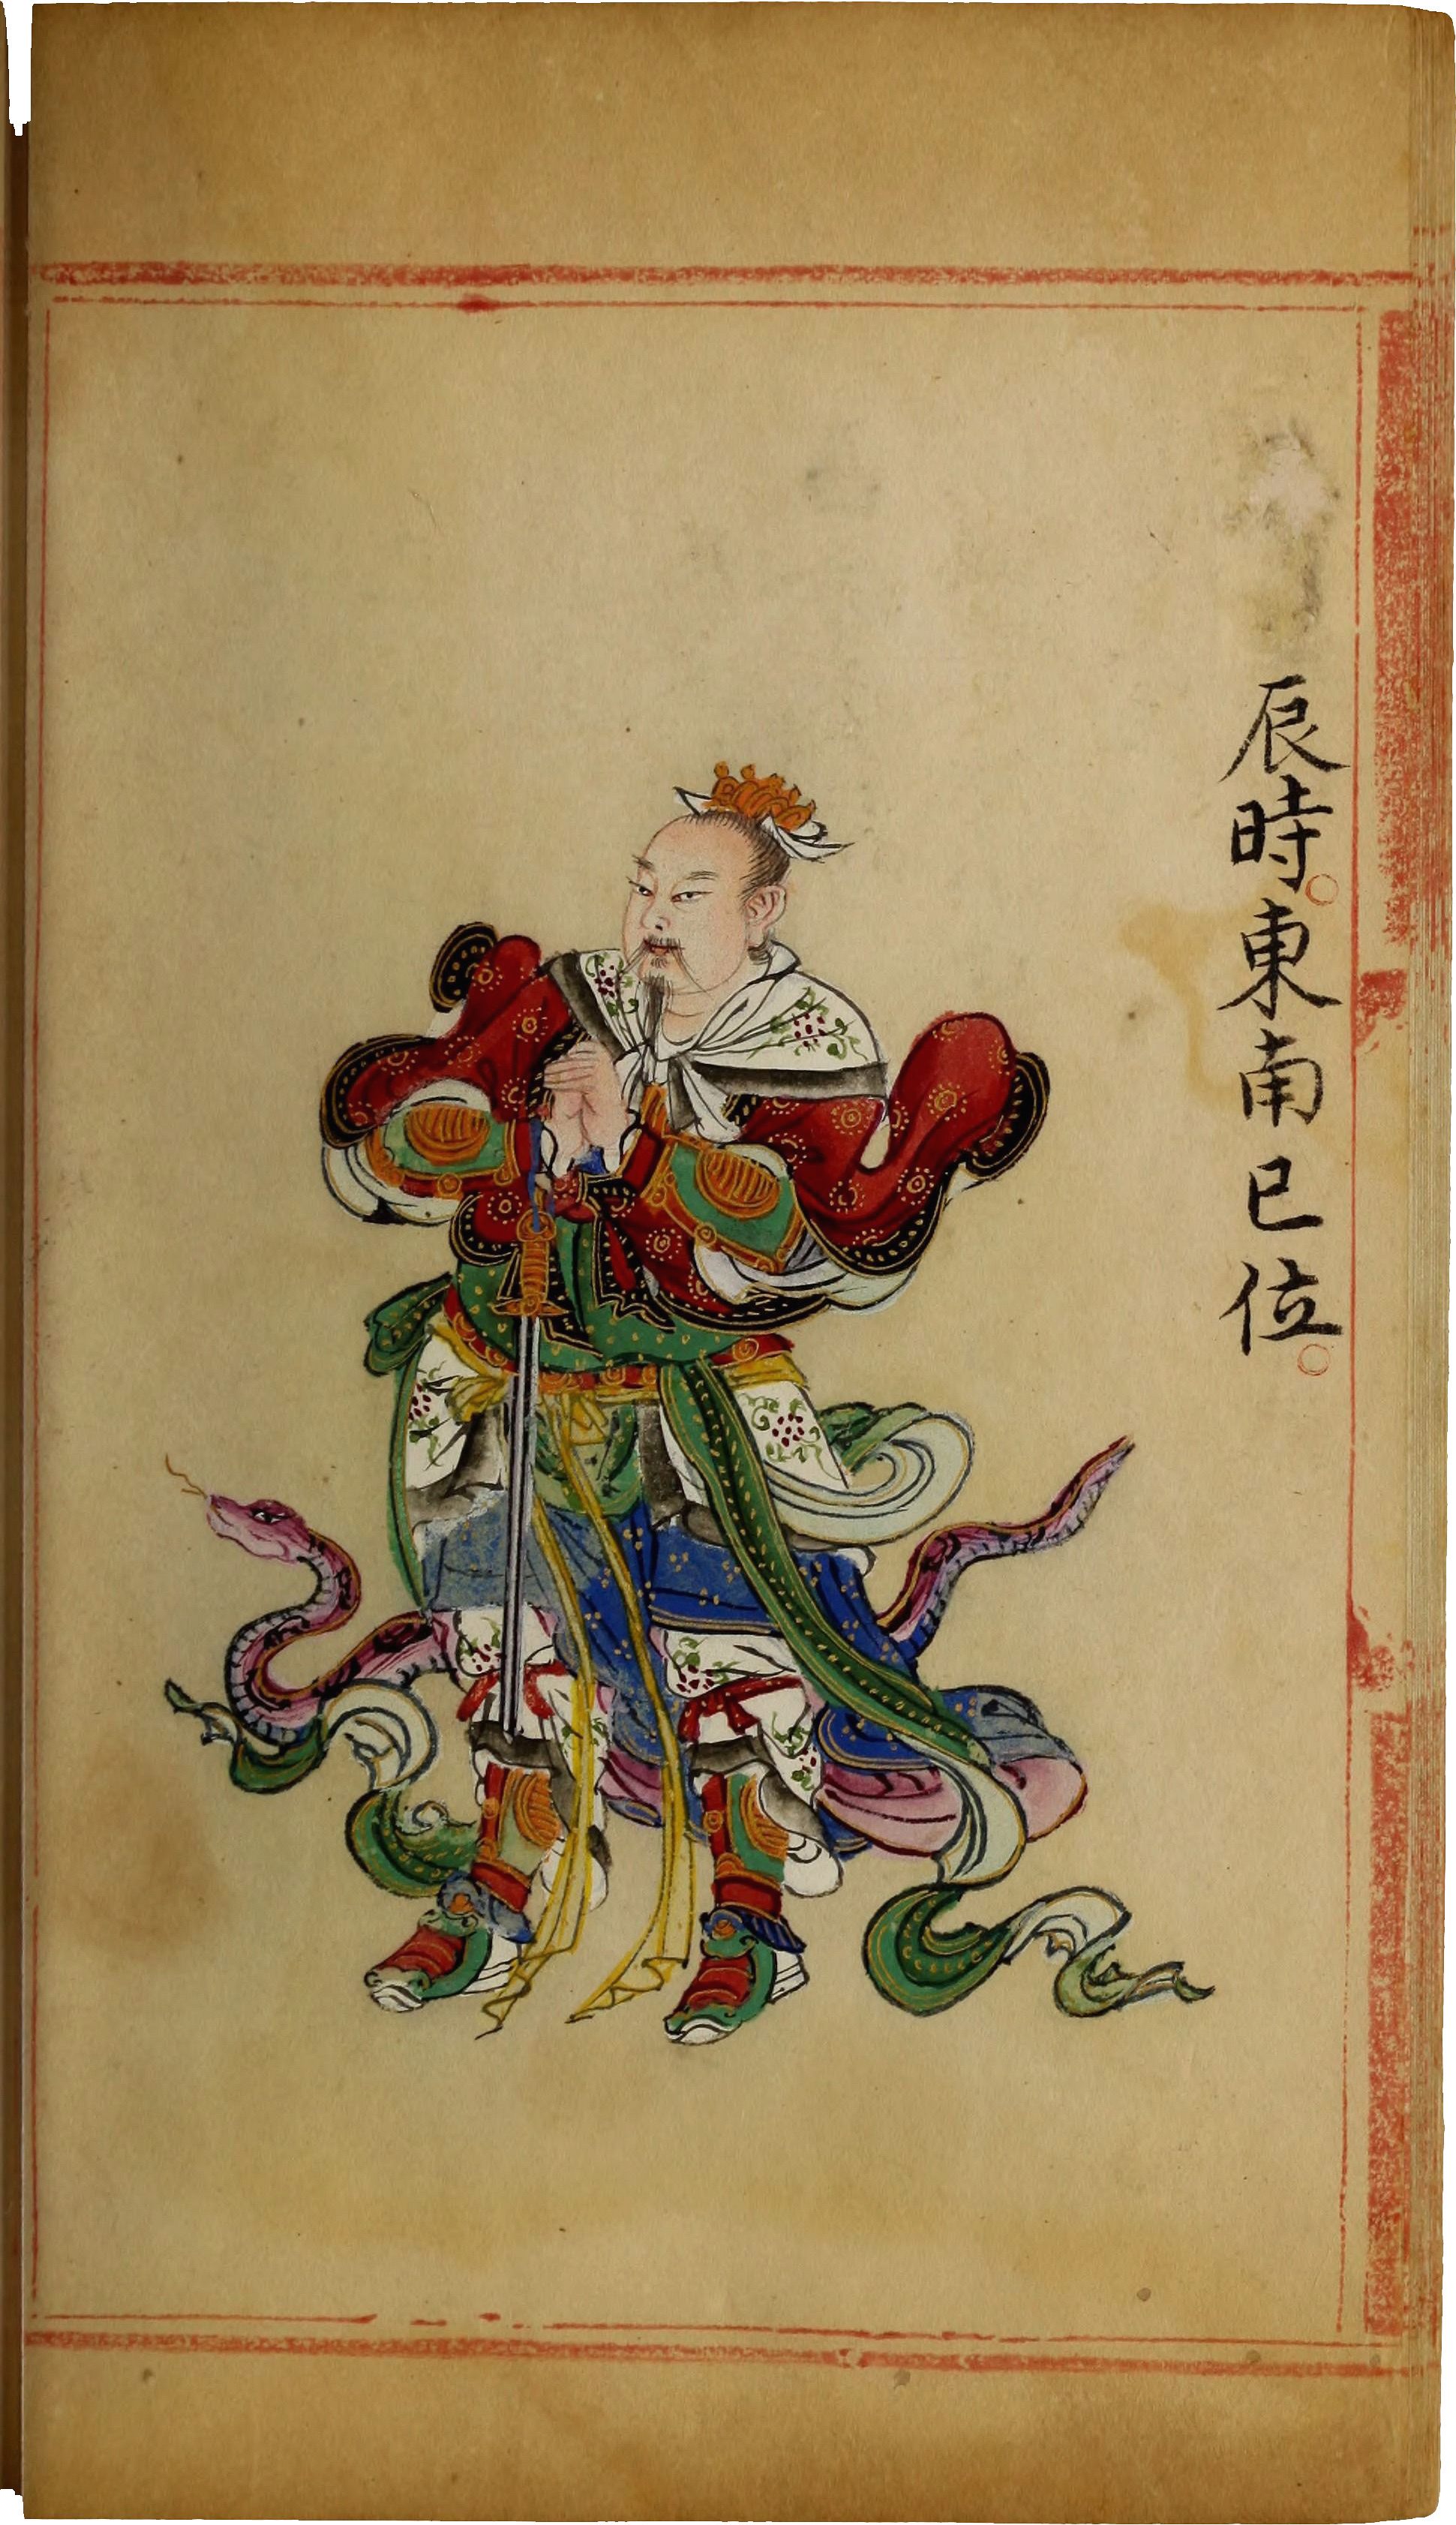 辰時東南巳位